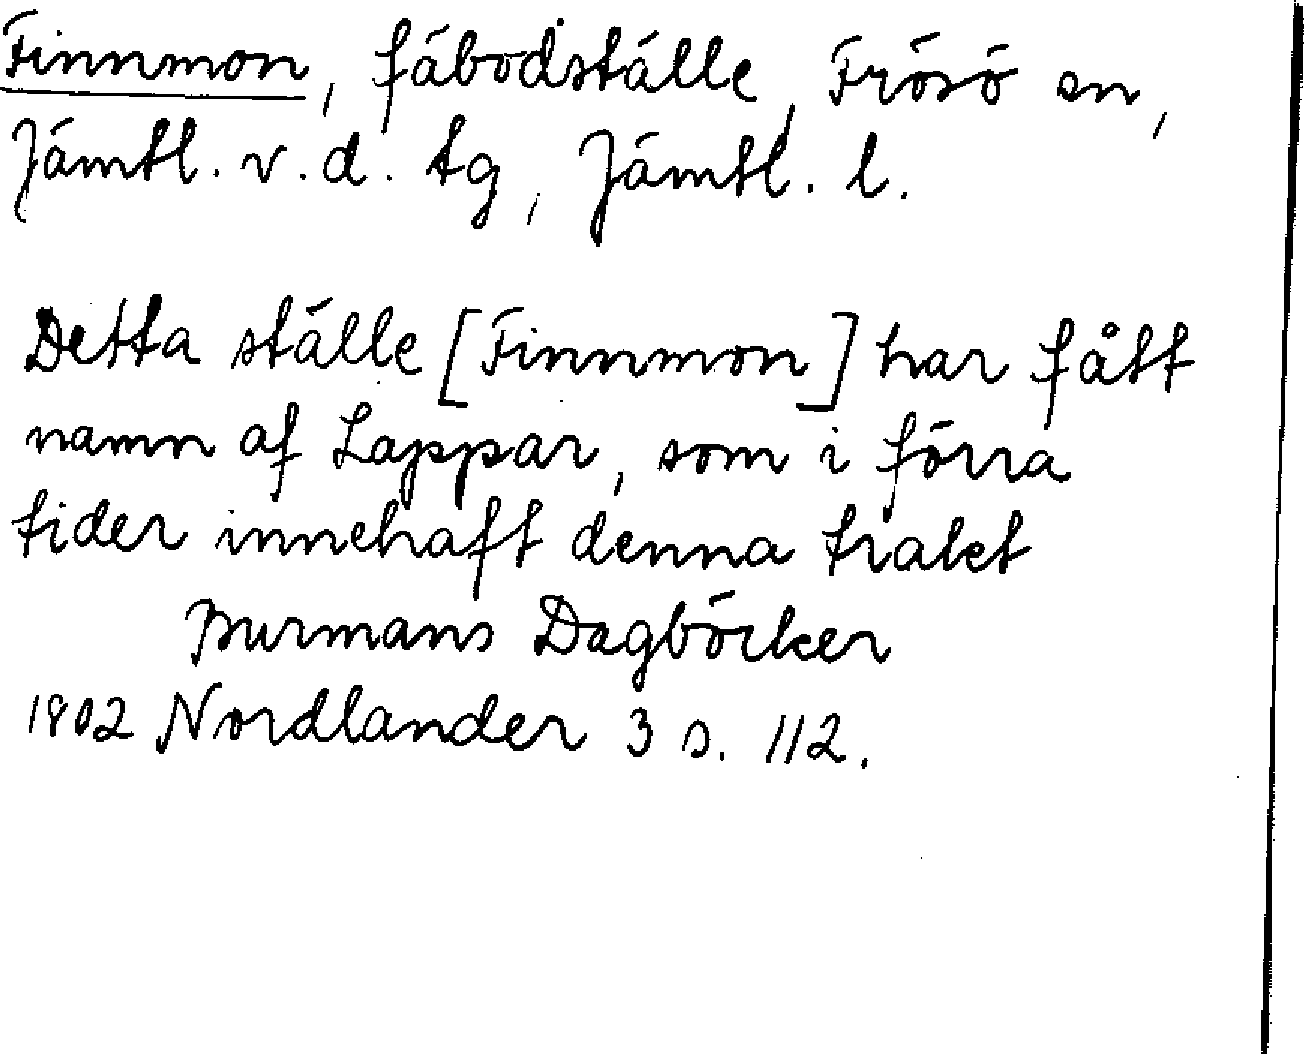 Finnmon, fäbodställe, Frösö sn,
Jämtl. v. d. tg, Jämtl. l.
Detta ställe [Finnmon] har fått
namn af Lappar, som i förra
tider innehaft denna traket
Burmans Dagböcker
1802 Nordlander 3 s. 112.